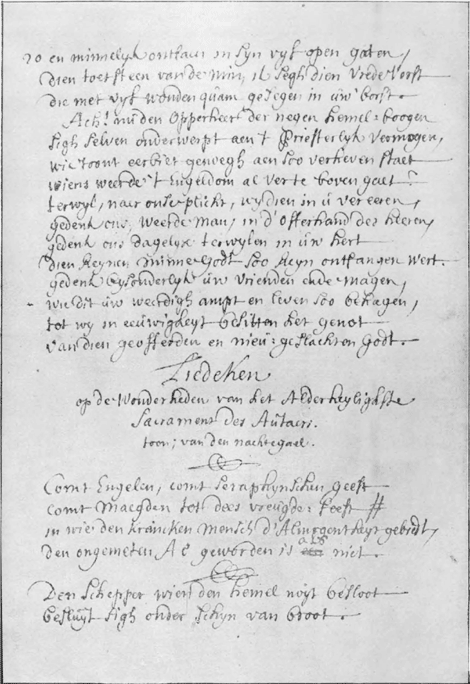 zo en minnelyk onthaus in syn vyf open gaten,
dien toetsteen van de min, ik segh dien vrede vorst
die met vyf wonden quam gesegen in uw' borst.
Ach! mids den opperheer der negen hemel-boogen
sigh selven onderwerpt aen 't Priesterlyk vermogen,
wie toont eerbiet genoegh aen soo verheven staet
wiens weerde 't Engeldom al verte boven gaet?
terwyl, naer onse plicht, wy dien in u vereeren,
gedenk ons, weerde man, in d'offerhand des heeren,
gedenk ons dagelyx terwylen in uw hert
dien reynen minne-Godt soo reyn ontfangen wert.
gedenk bysonderlyk uw vrienden ende magen,
wie dit uw weerdigh ampt en leven soo behagen,
tot wy in eeuwigheyt besitten het genot
van dien geofferden en nieu-geslachten Godt.
Liedeken
op de Wonderheden van het Alderheylighste
Sacrament des Autaers.
toon; van den nachtegael.
Comt Engelen, comt seraphynschen geest
comt Maegden tot dees vreugden feest #
in wie den krancken mensch d'Almogentheyt gebiedt,
den ongemeten A e geworden is als niet.
Den schepper wien den hemel noyt besloot
besluyt sigh onder schyn van broot.